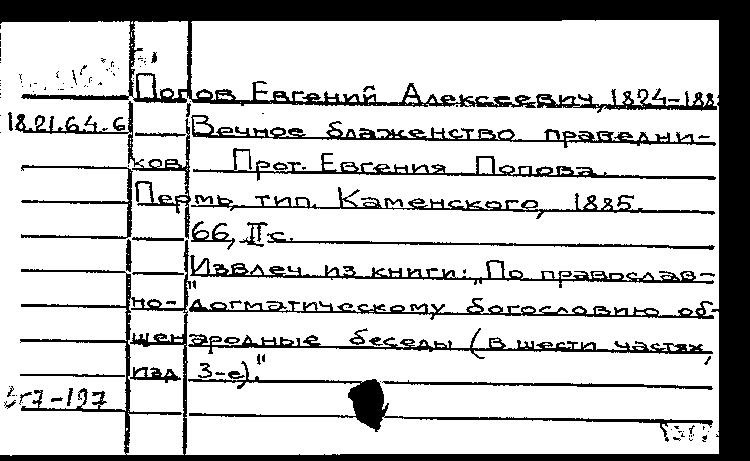 Попов, Евгений Алексеевич, 1824-188
18.21.64.6 Вечное блаженство праведни-
ков. Прот. Евгения Попова.
Пермь, тип. Каменского, 1885.
66, II с.
Извлеч. из книги: „По православ-
но-догматическому богословию об-
щенародные беседы (в шести частях,
изд. 3-е)."
-197